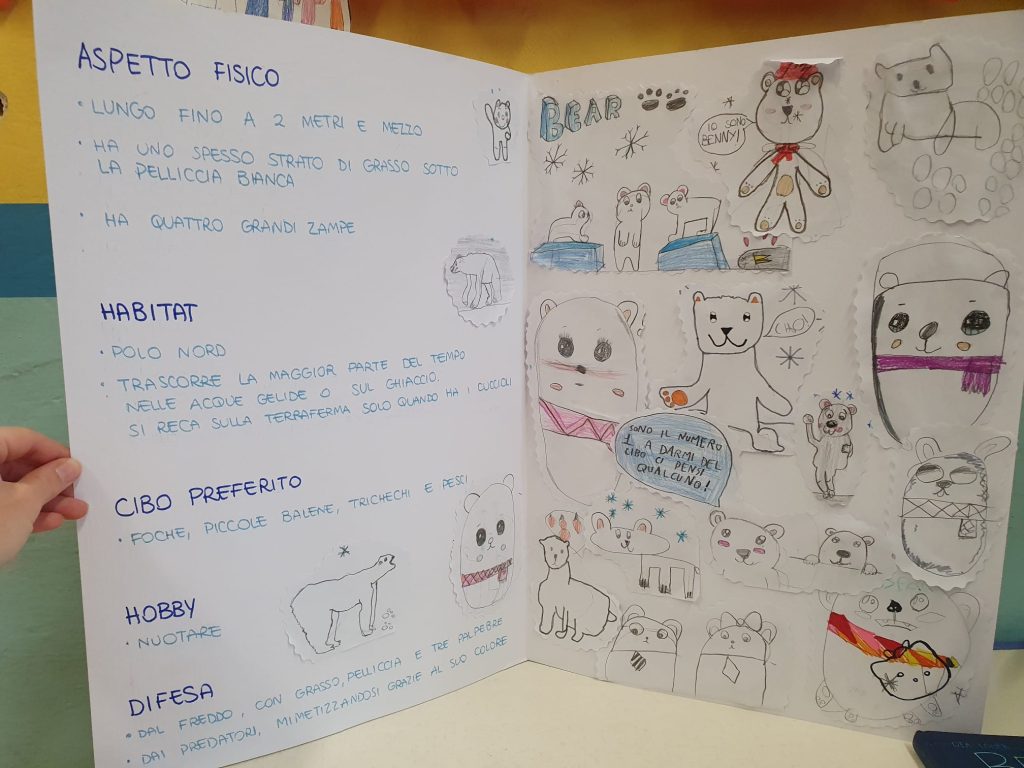 ASPETTO FISICO
• LUNGO FINO A 2 METRI E MEZZO
• HA UNO SPESSO STRATO DI GRASSO SOTTO
LA PELLICCIA BIANCA
• HA QUATTRO GRANDI ZAMPE
HABITAT
• POLO NORD
• TRASCORRE LA MAGGIOR PARTE DEL TEMPO
NELLE ACQUE GELIDE O SUL GHIACCIO.
SI RECA SULLA TERRAFERMA SOLO QUANDO HA I CUCCIOLI
CIBO PREFERITO
• FOCHE, PICCOLE BALENE, TRICHECHI E PESCI
HOBBY
• NUOTARE
DIFESA
• DAL FREDDO, CON GRASSO, PELLICCIA E TRE PALPEBRE
• DAI PREDATORI, MIMETIZZANDOSI GRAZIE AL SUO COLORE
BEAR
IO SONO
BENNY!
SONO IL NUMERO
1. A DARMI DEL
CIBO CI PENSI
QUALCUNO!